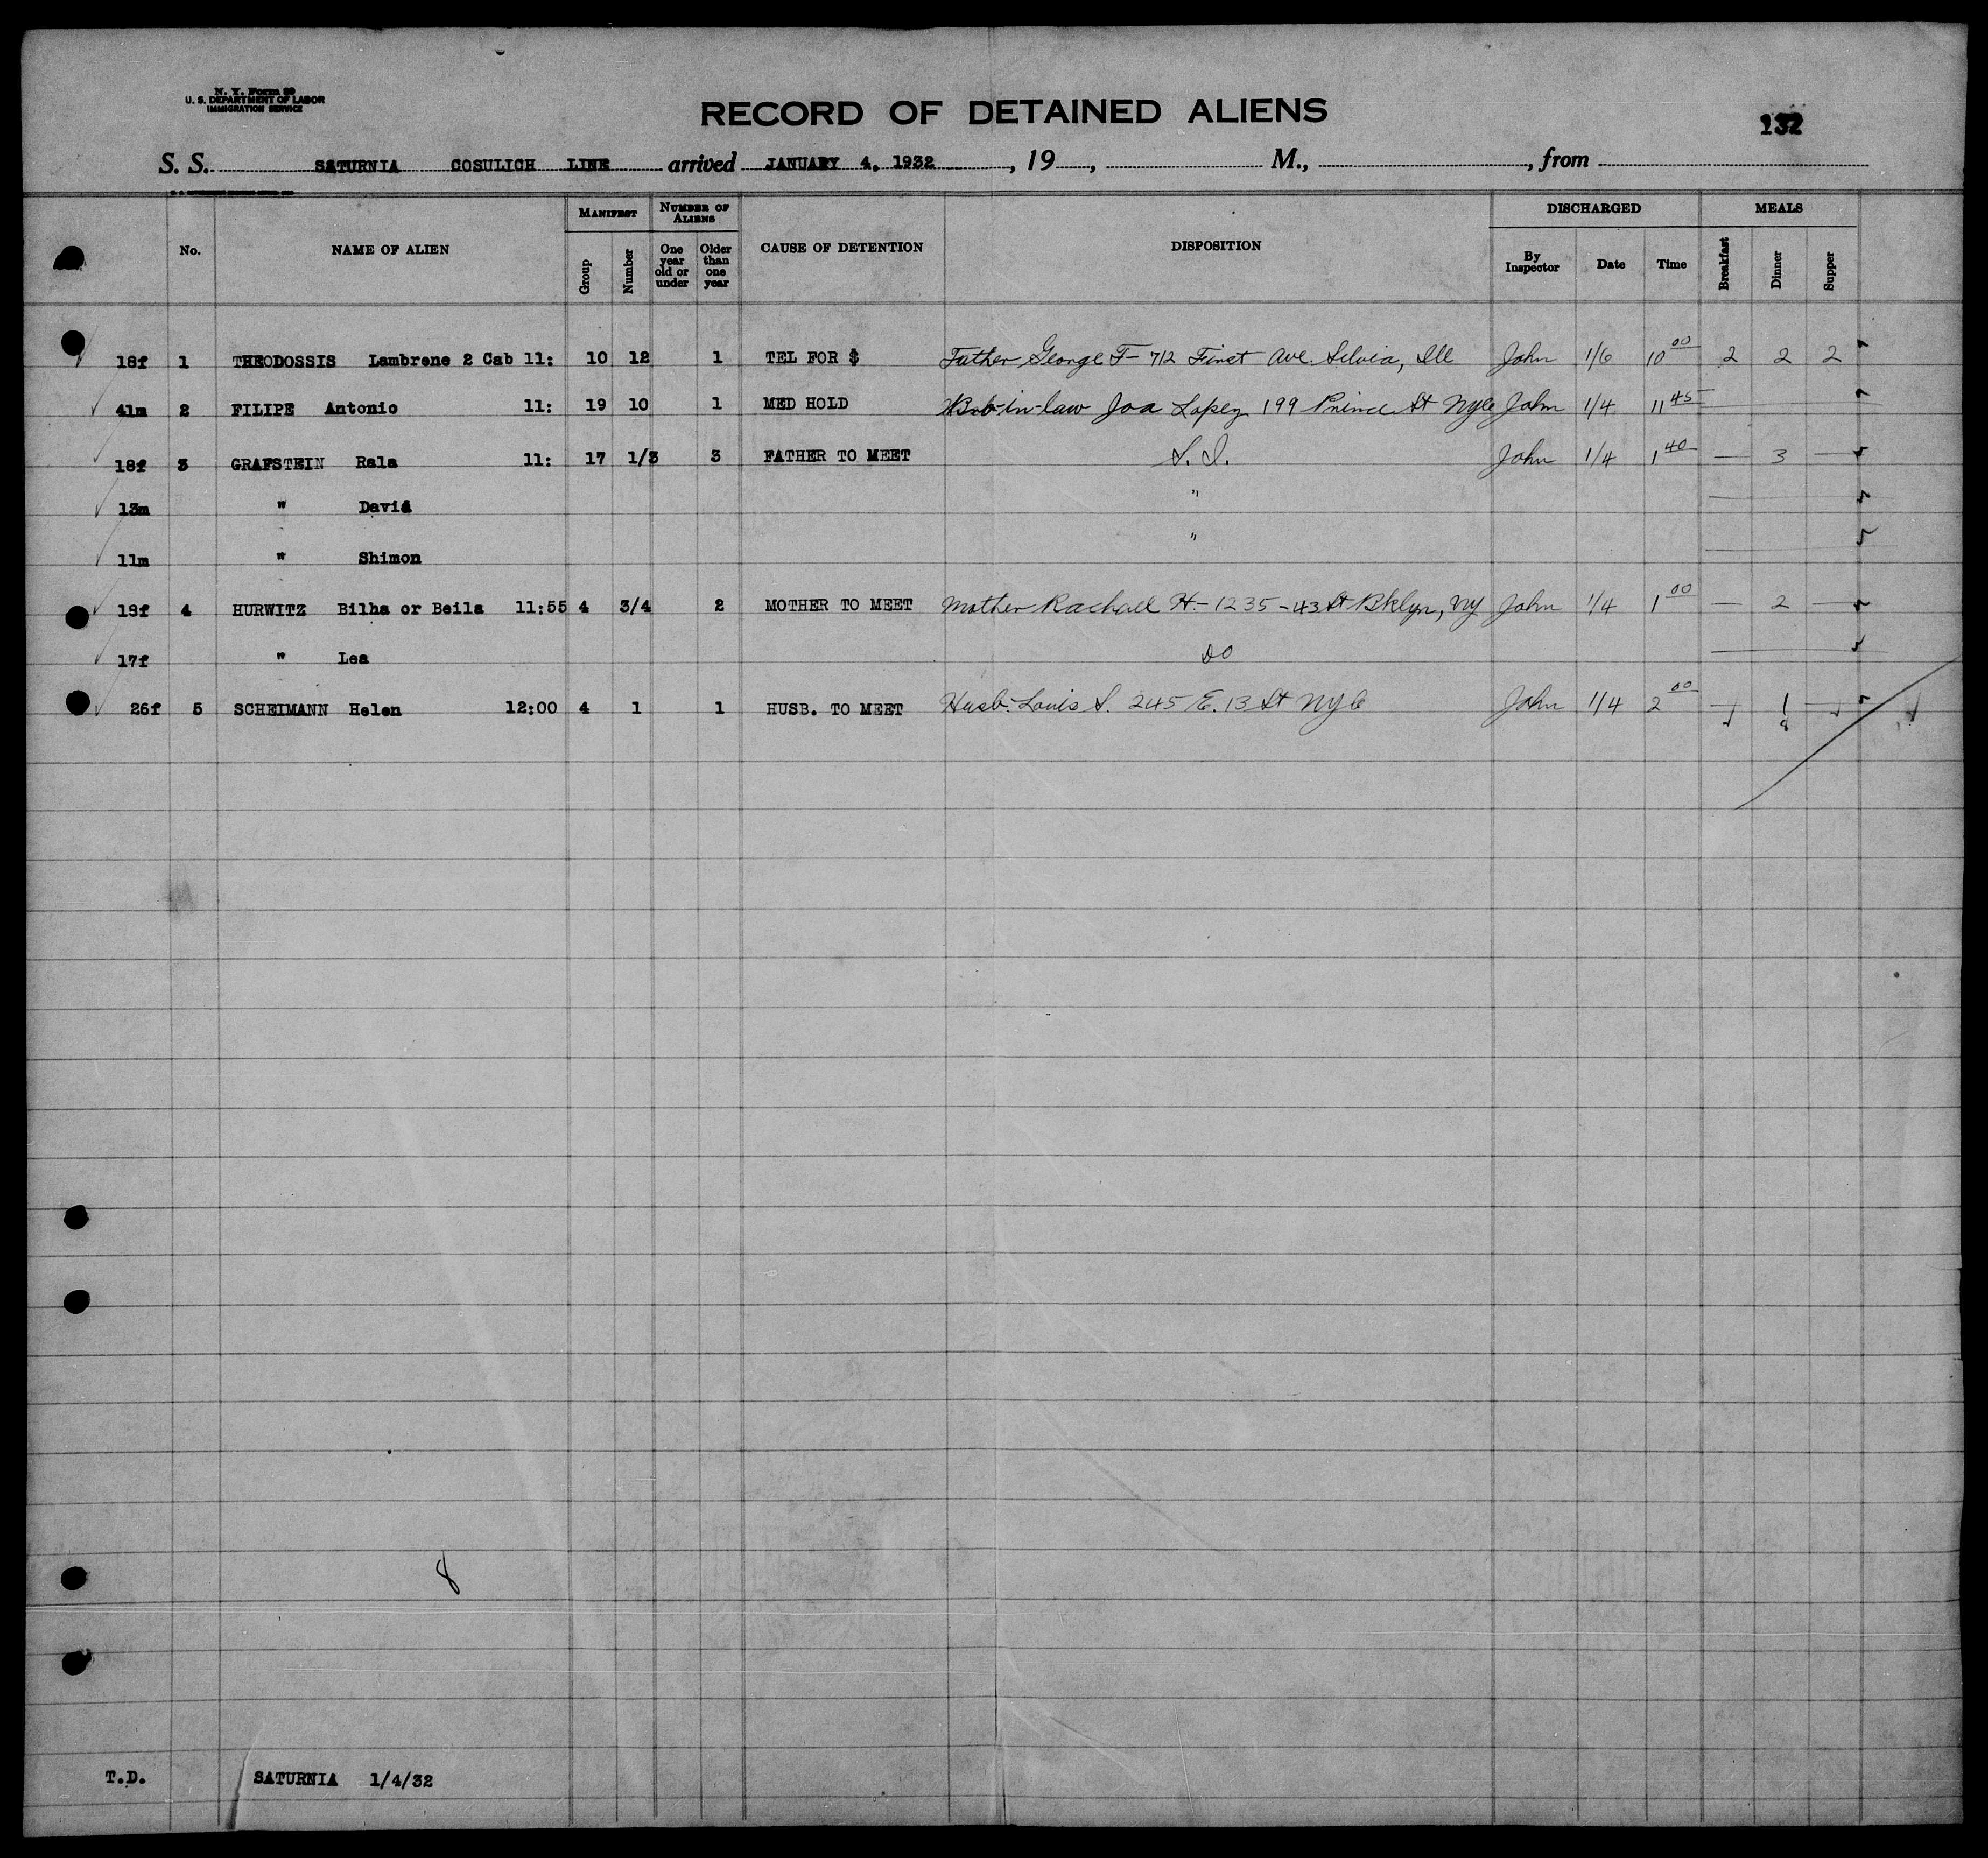 N. Y. Form 89
U. S. DEPARTMENT OF LABOR
IMMIGRATION SERVICE
RECORD OF DETAINED ALIENS
132
S. S. SATURNIA COSULICH LINE arrived JANUARY 4, 1932, 19 , M., , from
No. NAME OF ALIEN MANIFEST Group Number NUMBER OF ALIENS One year old or under Older than one year CAUSE OF DETENTION DISPOSITION DISCHARGED By Inspector Date Time MEALS Breakfast Dinner Supper
18f 1 THEODOSSIS Lambrene 2 Cab 11: 10 12 1 TEL FOR $ Father George T- 712 First Ave. Silvia, Ill John 1/6 10 00 2 2 2
41m 2 FILIPE Antonio 11: 19 10 1 MED HOLD Bro-in-law Joa Lopez 199 Prince St NYC John 1/4 11 45
18f 3 GRAFSTEIN Rala 11: 17 1/3 3 FATHER TO MEET S. I. John 1/4 1 40 — 3 —
13m " David "
11m " Shimon "
19f 4 HURWITZ Bilha or Beila 11:55 4 3/4 2 MOTHER TO MEET Mother Rachael H.- 1235-43 St Bklyn, NY John 1/4 1 00 — 2 —
17f " Lea do
26f 5 SCHEIMANN Helen 12:00 4 1 1 HUSB. TO MEET Husb. Louis S. 245 E. 13 St NYC John 1/4 2 00 — 1 —
8
8
T.D. SATURNIA 1/4/32